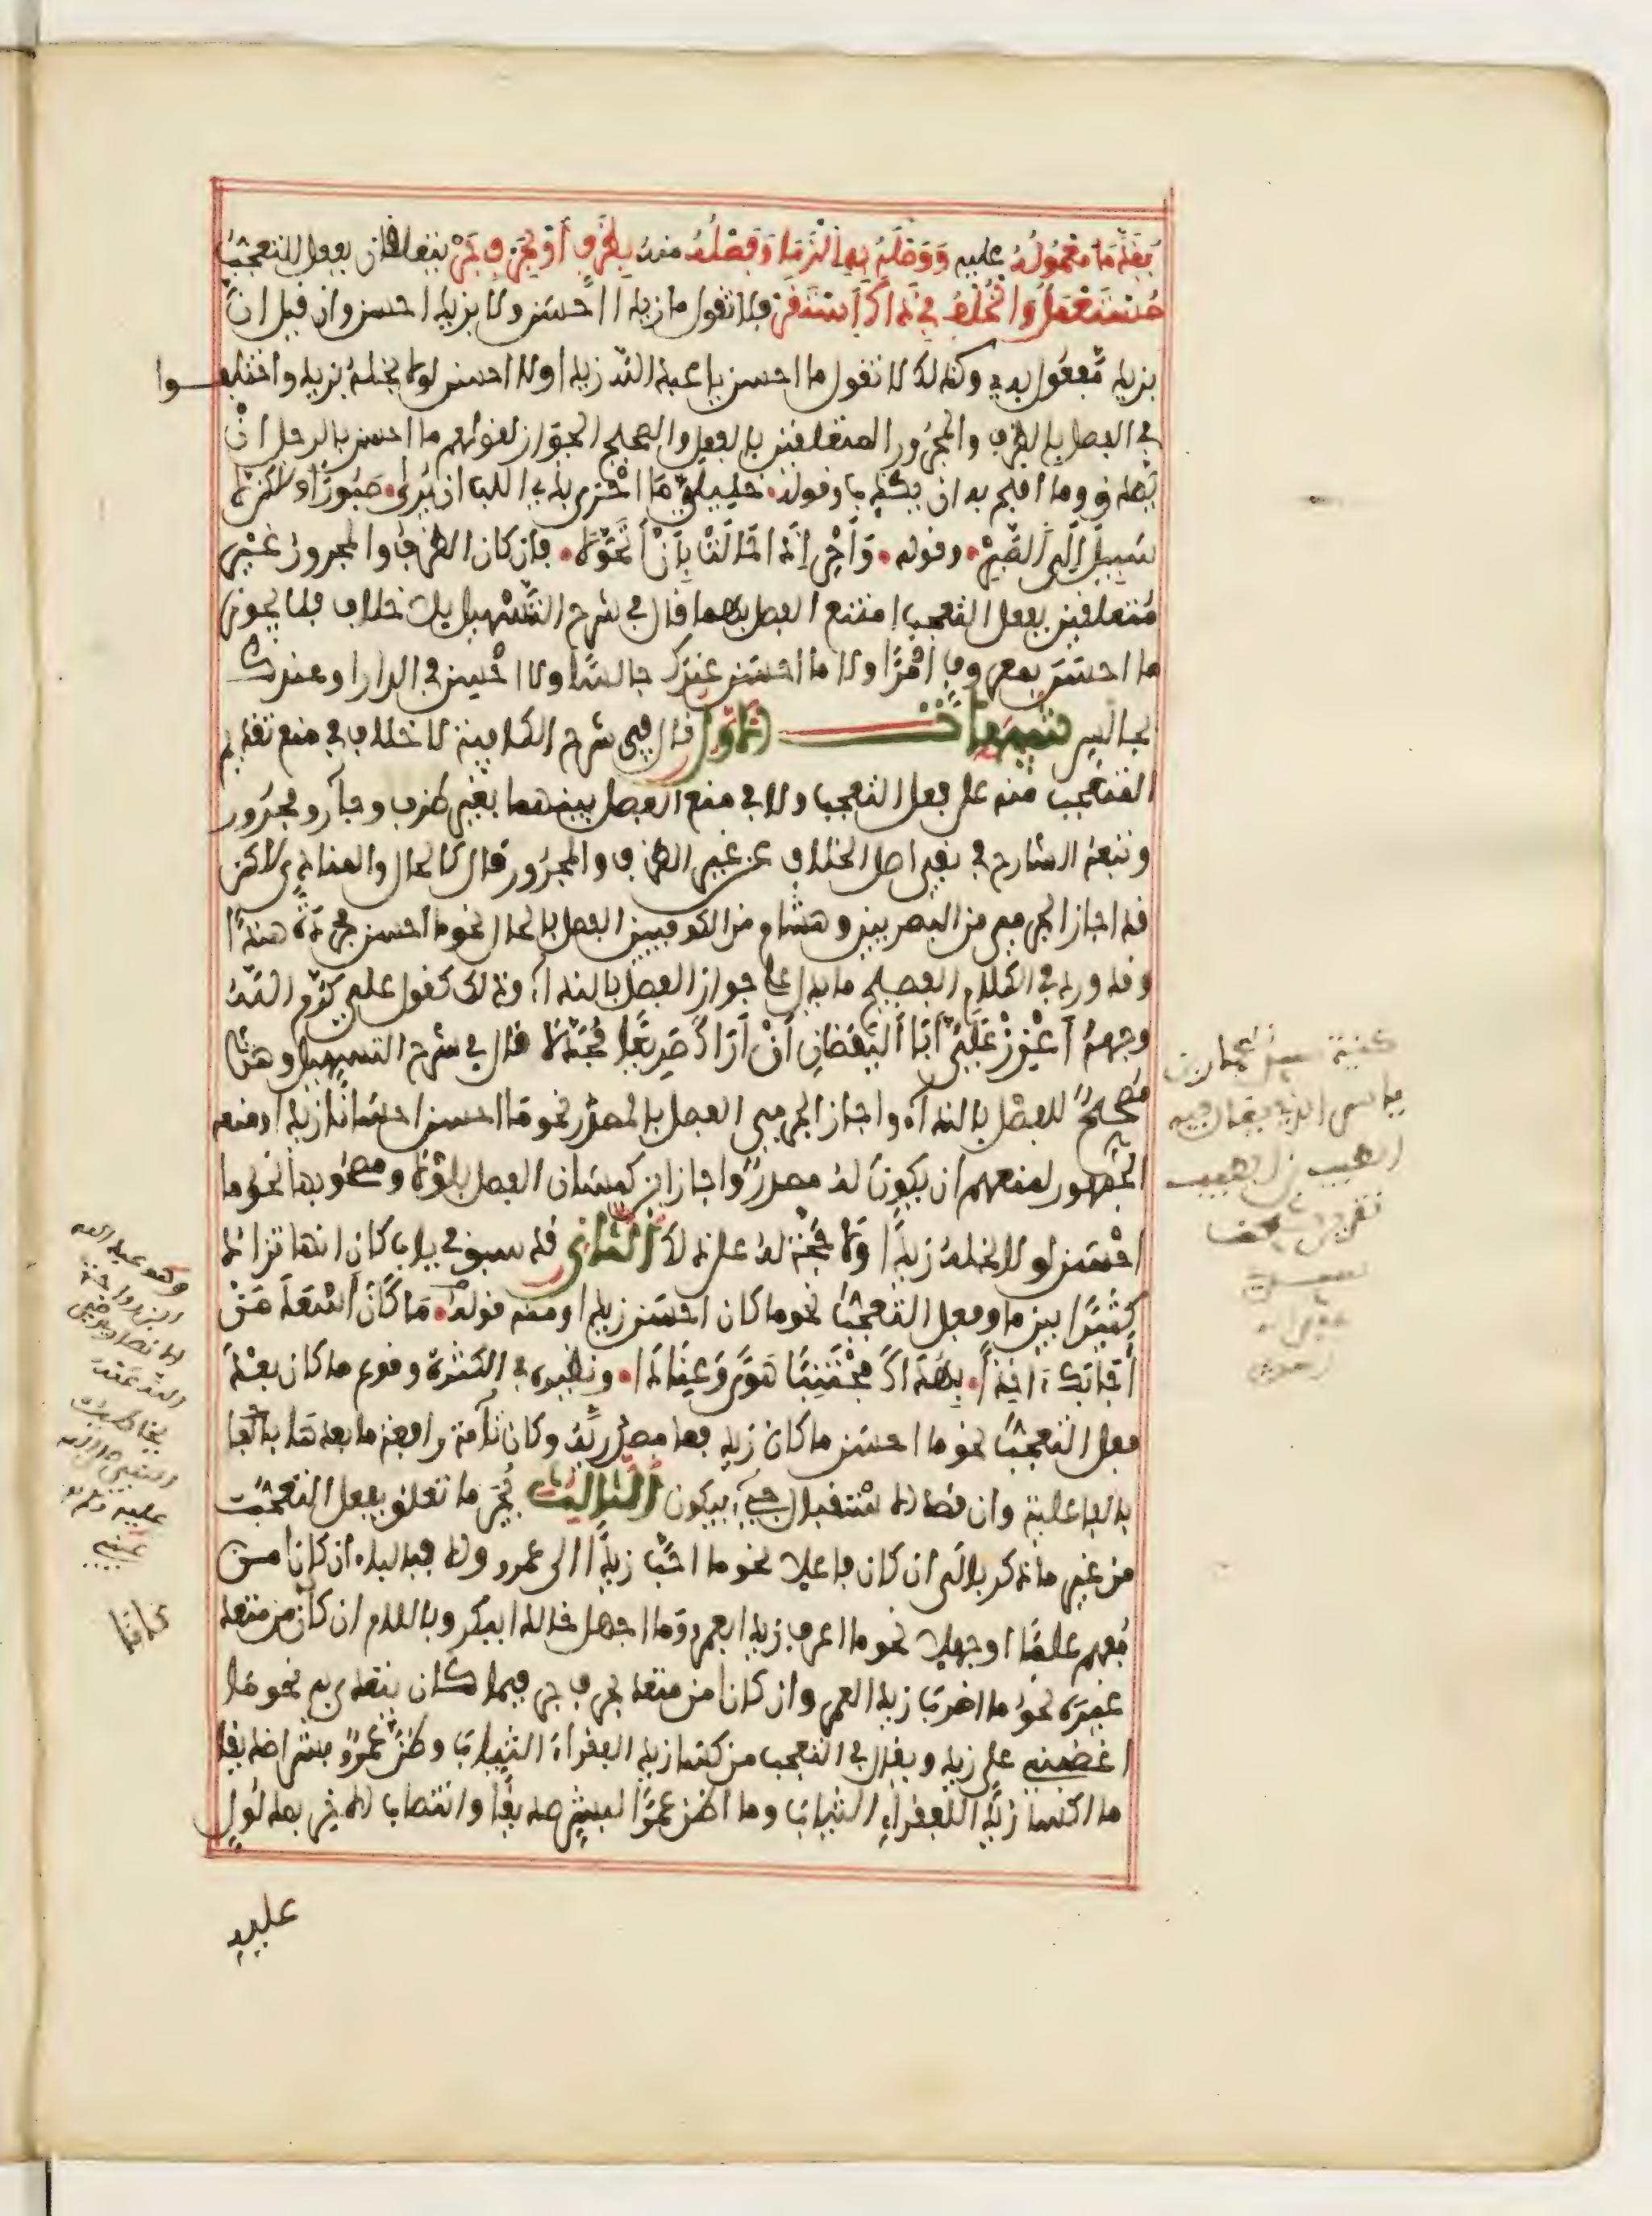 يُقَدَّمَا مَعْمُولُهُ عليه وَوَصْلَهُ بِهِ الْزَمَا وَفَصْلُهُ منه بِظَرْفٍ أَوْ بِحَرْفِ جَرّ يتعلقان بفعل التعجب
مُسْتَعْمَلٌ وَالْخُلْفُ فِي ذَاكَ اسْتَقَرّ فلا تقول ما زيدا احسن ولا بزيد احسن وان قيل ان
بزيد مفعول به وكذلك لا تقول ما احسن يا عبد الله زيدا ولا احسن لولا بخله بزيد واختلفوا
في الفصل بالظرف والمجرور المتعلقين بالفعل والصحيح الجواز لقولهم ما احسن بالرجل ان
يصدق وما اقبح به ان يكذب وقوله خليلي ما احرى بذي اللب ان يرى صبورا ولاكن لا
سبيل الى الصبر وقوله وَأَحْرِ إذا حالت بِأَنْ أتحولا فإن كان الظرف والمجرور غير
متعلقين بفعل التعجب امتنع الفصل بهما قال في شرح التسهيل بلا خلاف فلا يجوز
ما احسن بمعروف آمرا ولا ما احسن عندك جالسا ولا احسن في الدار او عندك
بجالس تنبيهات الاول قال في شرح الكافية لا خلاف في منع تقديم
المتعجب منه على فعل التعجب ولا في منع الفصل بينهما بغير ظرف وجار ومجرور
وتبعه الشارح في نفي اصل الخلاف عن غير الظرف والمجرور قال كالحال والمنادى لاكن
قد اجاز الجرمي من البصريين وهشام من الكوفيين الفصل بالحال نحو ما احسن مجردة هندا
وقد ورد في الكلام الفصيح ما يدل على جواز الفصل بالنداء وذلك كقول علي كرم الله
وجهه أَعْزِزْ عَلَيَّ أَبَا الْيَقْظَانِ أَنْ أَرَاكَ صَرِيعًا مُجَدَّلًا قال في شرح التسهيل وهذا
مصحح للفصل بالنداء واجاز الجرمي الفصل بالمصدر نحو ما احسن احسانا زيدا ومنعه
الجمهور لمنعهم ان يكون له مصدر واجاز ابن كيسان الفصل بلولا ومصحوبها نحو ما
احسن لولا بخله زيدا ولا حجة له على ذلك الثاني قد سبق في باب كان انها تزاد
كثيرا بين ما وفعل التعجب نحو ما كان احسن زيدا ومنه قوله مَا كَانَ أَسْعَدَ مَنْ
أجابك آخذا بِهُدَاكَ مُجْتَنِبًا هَوًى وَعِنَادَا ونظيره في الكثرة وقوع ما كان بعد
فعل التعجب نحو ما احسن ما كان زيد فما مصدرية وكان تامة رافعة ما بعدها
بالفاعلية وان قصد الاستقبال جيء بيكون الثالث يُجَرّ ما تعلق بفعل التعجب
من غير ما ذكر بالى ان كان فاعلا نحو ما احب زيدا الى عمرو والا فبالباء ان كانا من
مفهم علما او جهلا نحو ما اعرف زيدا بعمرو وما اجهل خالدا ببكر وباللام ان كان من متعد
غيره نحو ما اضرب زيدا لعمرو وان كانا من متعد بحرف جر فبما كان يتعدى به نحو ما
اغضبني على زيد ويقال في التعجب من كسا زيد الفقراء الثياب وظن عمرو بشرا صديقا
ما اكسا زيدا للفقراء الثياب وما اظن عمرا لبشر صديقا وانتصاب الاخر بمدلول
عليه
وهو عبد الله